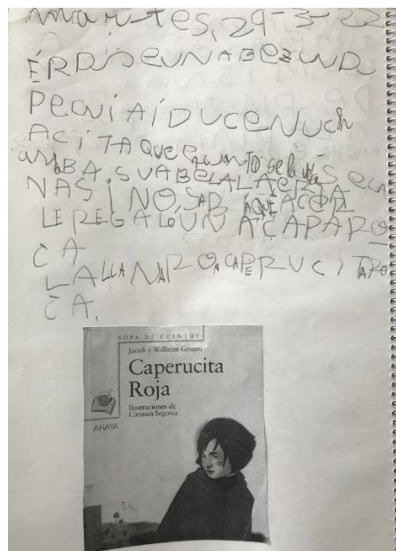 martes, 29-3-22
ÉRASEUNABEZUNA
PEQUIAÍDUCENUCH
ACITAQUE cuanTO se la be
AMABA. SUABELALAERA
NAS NO SAB AQUÉACOR
LEREGALÓUN ACAPARO
CA
LALLAMARONCAPERUCITARO
CA.
SOPA DE CUENTOS
Jacob y Wilhelm Grimm
Caperucita
Roja
Ilustraciones de
Carmen Segovia
ANAYA